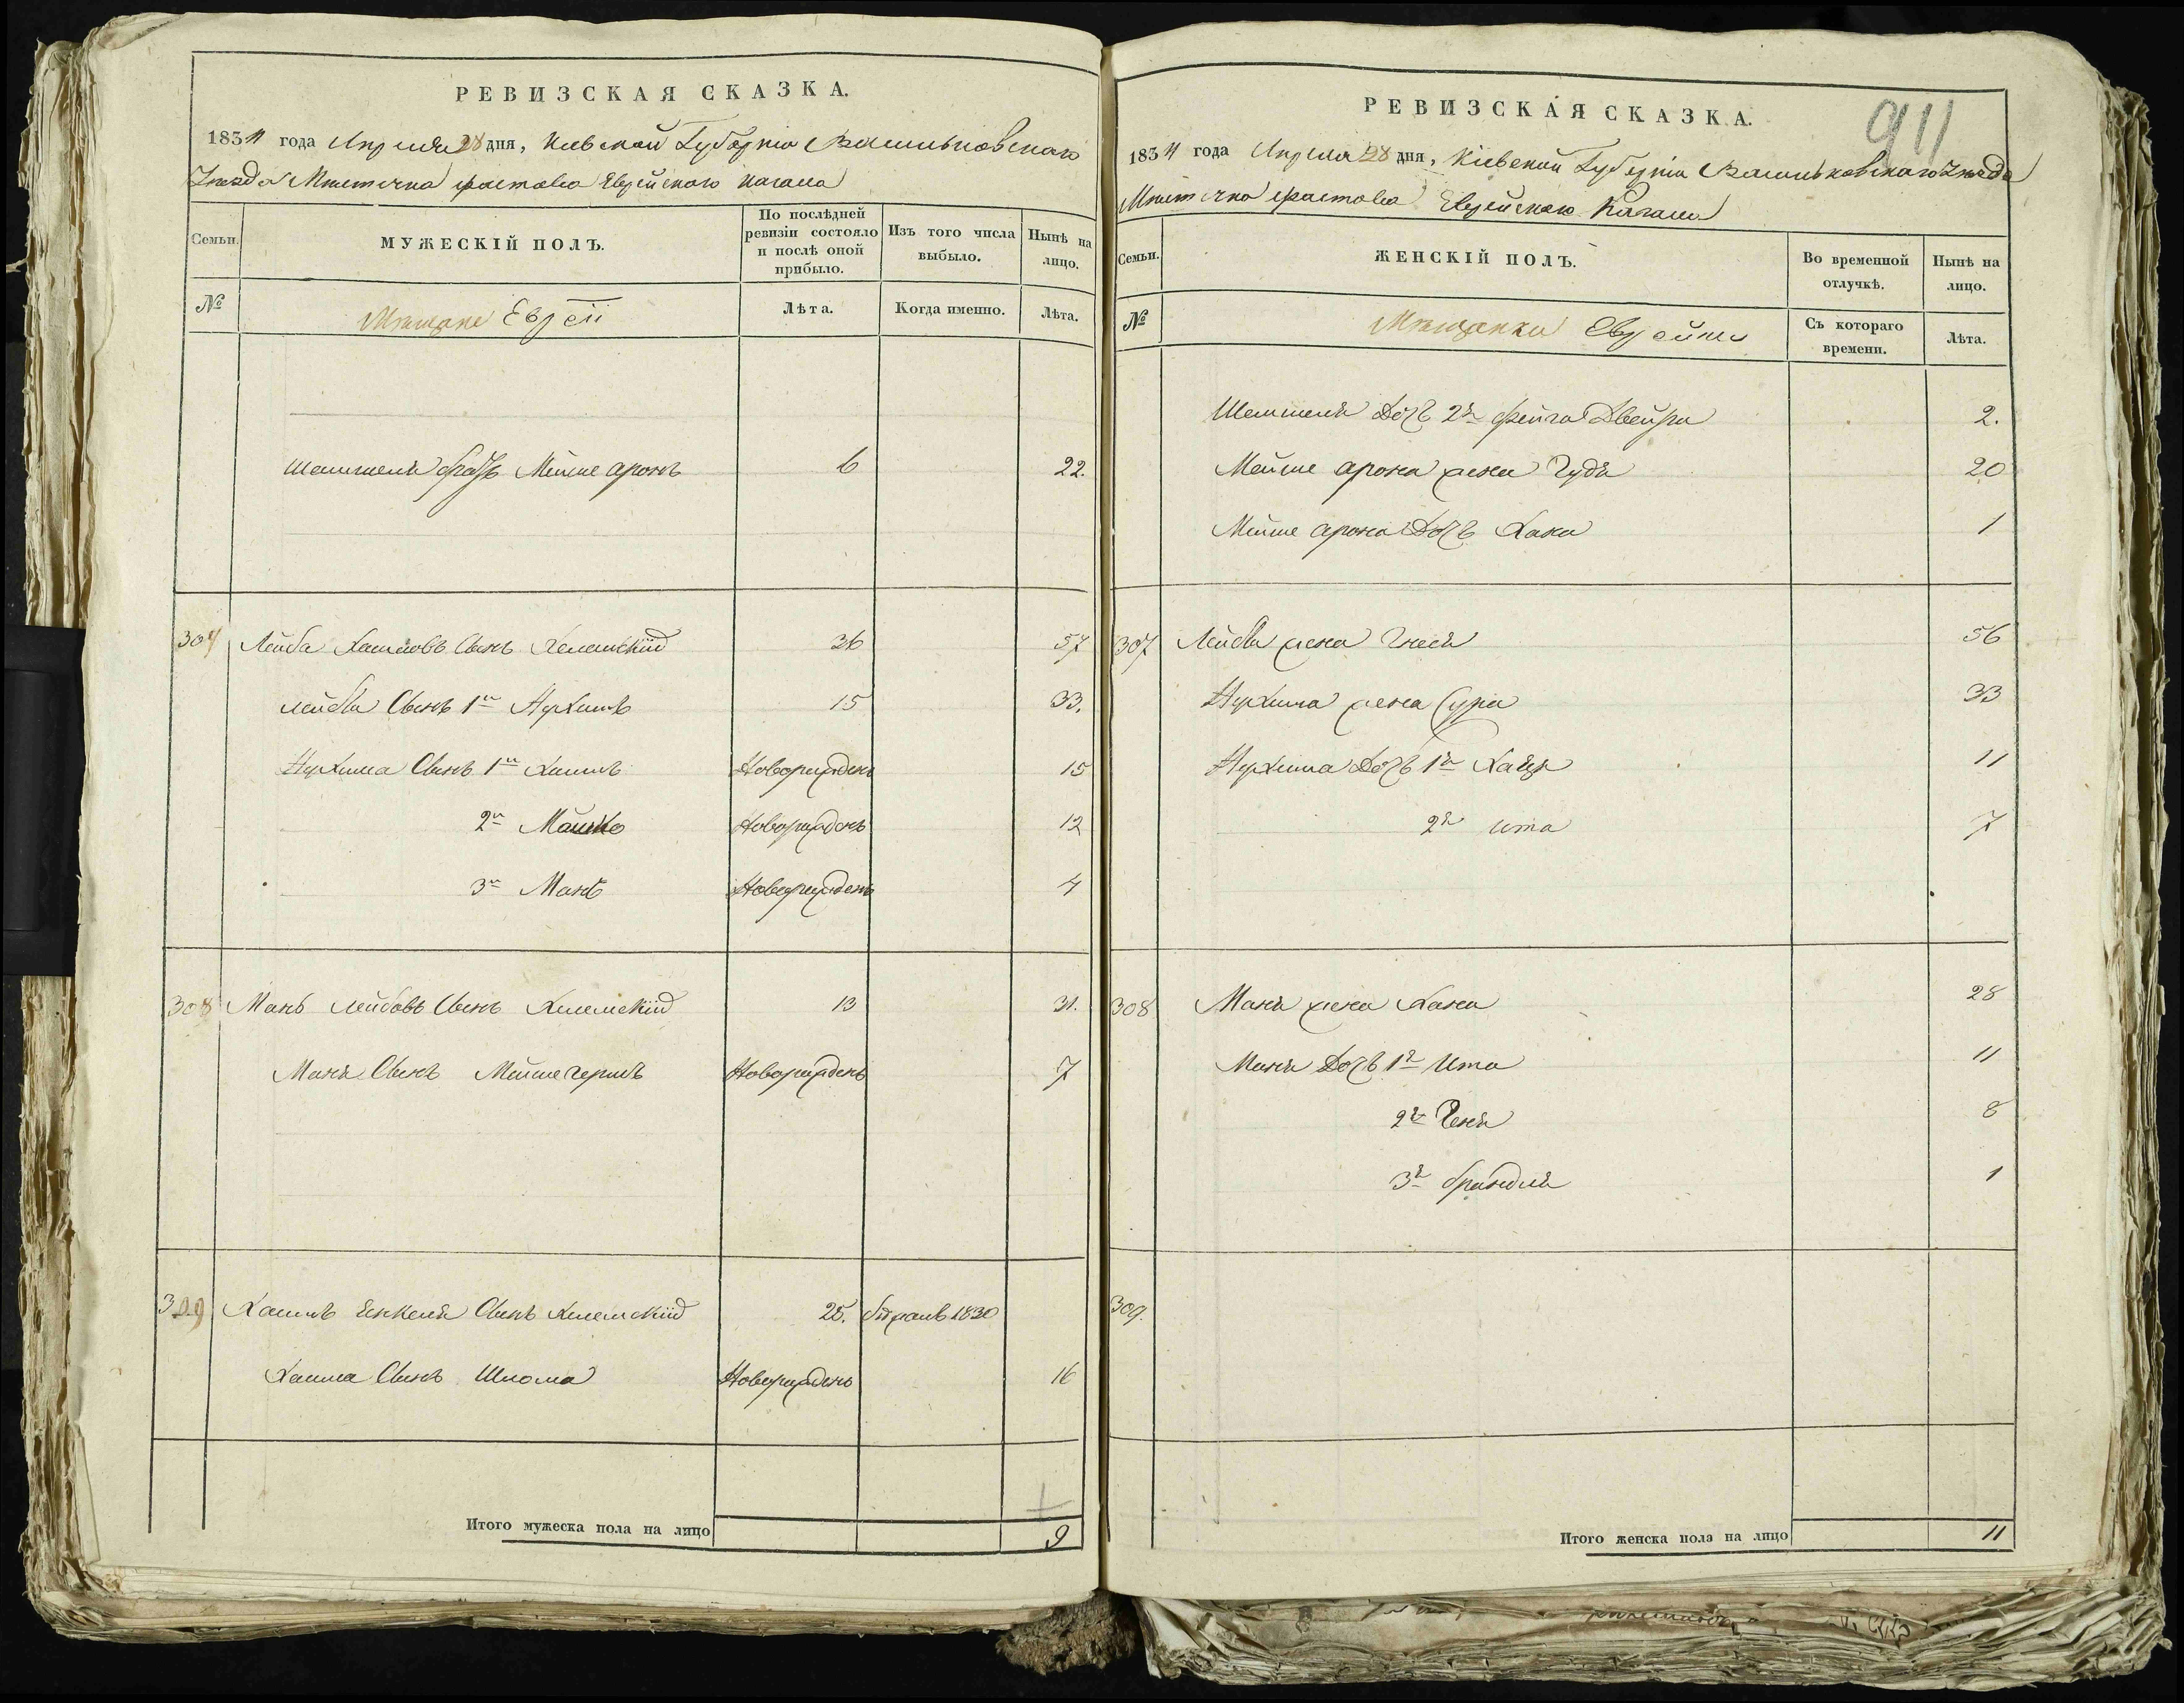 РЕВИЗСКАЯ СКАЗКА.
1834 года Апреля 28 дня, Киевской Губерніи Васильковскаго
Уезда Мѣстечка Фастова Еврейскаго Кагала
Семьи.
МУЖЕСКІЙ ПОЛЪ.
По послѣдней ревизіи состояло и послѣ оной прибыло.
Изъ того числа выбыло.
Нынѣ на лицо.
№
Мѣщане Евреи
Лѣта.
Когда именно.
Лѣта.
братъ Мейше Аронъ 6 22.
307 Лейба Хаимовъ Сынъ 36 57
Лейбы Сынъ 1й Нухимъ 15 33.
Нухима Сынъ 1й Хаимъ Новорожденъ 15
2й Мошко Новорожденъ 12
3й Манъ Новорожденъ 4
308 Манъ Лейбовъ Сынъ 13 31.
Маня Сынъ Мейше Гершъ Новорожденъ 7
309 Хаимъ Янкеля Сынъ 25. 1830
Хаима Сынъ Шлома Новорожденъ 16
Итого мужеска пола на лицо 9
911
РЕВИЗСКАЯ СКАЗКА.
1834 года Апреля 28 дня, Кіевской Губерніи Васильковскаго Уезда
Мѣстечка Фастова Еврейскаго Кагала
Семьи.
ЖЕНСКІЙ ПОЛЪ.
Во временной отлучкѣ.
Нынѣ на лицо.
№
Мѣщанки Еврейки
Съ котораго времени.
Лѣта.
Дочь 2я Фейга Двейра 2.
Мейше Арона жена 20
Мейше Арона Дочь Хана 1
307 Лейбы жена Гнеся 56
Нухима жена Сура 33
Нухима Дочь 1я Хайя 11
2я Ита 7
308 Маня жена Хана 28
Маня Дочь 1я Ита 11
2я Геня 8
3я Брандля 1
309.
Итого женска пола на лицо 11